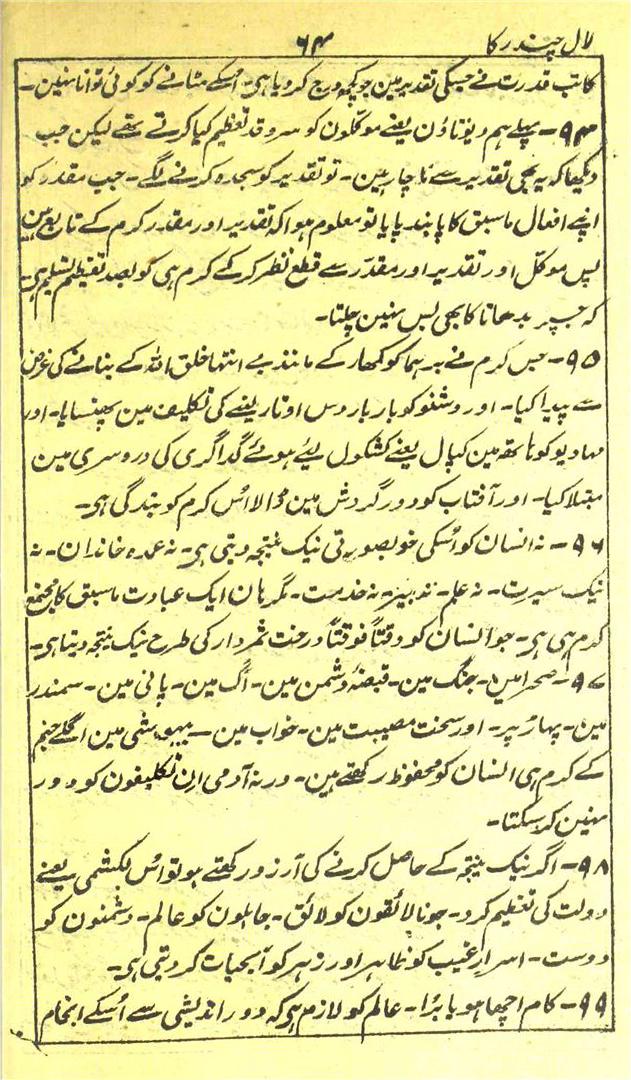 لال چندرکا ۶۴
کاتب قدرت نے جسکی تقدیر مین جو کچھ درج کر دیا ہی۔ اُسکے مٹانے کو کوئی توانا نہین۔
۹۴۔ پہلے ہم دیوتاؤن یعنے موکلون کو سروقد تعظیم کیا کرتے تھے لیکن جب
دیکھا کہ یہ بھی تقدیر سے ناچار ہین۔ تو تقدیر کو سجدہ کرنے لگے۔ جب مقدر کو
اپنے افعال ماسبق کا پابند پایا تو معلوم ہوا کہ تقدیر اور مقدر کرم کے تابع ہین
پس موکل اور تقدیر اور مقدر سے قطع نظر کرکے کرم ہی کو بصد تعظیم تسلیم ہی۔
کہ جسپر بدھاتا کا بھی بس نہین چلتا۔
۹۵۔ جس کرم نے برہما کو کمھار کے مانند بے انتہا خلق اللہ کے بنانے کی غرض
سے پیدا کیا۔ اور وشنو کو بار بار دس اوتار لینے کی تکلیف مین پھنسایا۔ اور
مہادیو کو ہاتھ مین کپال یعنے کشکول لیئے ہوئے گداگری کی دردسری مین
مبتلا کیا۔ اور آفتاب کو دور گردش مین ڈالا اُس کرم کو بندگی ہی۔
۹۶۔ نہ انسان کو اُسکی خوبصورتی نیک نتیجہ دیتی ہی۔ نہ عمدہ خاندان۔ نہ
نیک سیرت۔ نہ علم۔ نہ تدبیر۔ نہ خدمت۔ مگر ہان ایک عبادت ماسبق کا مجمع
کرم ہی ہی۔ جو انسان کو وقتاً فوقتاً درخت ثمردار کی طرح نیک نتیجہ دیتا ہی۔
۹۷۔ صحرا مین۔ جنگ مین۔ قبضۂ دشمن مین۔ آگ مین۔ پانی مین۔ سمندر
مین۔ پہاڑ پر۔ اور سخت مصیبت مین۔ خواب مین۔ بیہوشی مین اگلے جنم
کے کرم ہی انسان کو محفوظ رکھتے ہین۔ ورنہ آدمی اِن تکلیفون کو دور
نہین کر سکتا۔
۹۸۔ اگر نیک نتیجہ کے حاصل کرنے کی آرزو رکھتے ہو تو اُس لکشمی یعنے
دولت کی تعظیم کرو۔ جو نالائقون کو لائق۔ جاہلون کو عالم۔ دشمنون کو
دوست۔ اسرار غیب کو ظاہر اور زہر کو آبحیات کر دیتی ہی۔
۹۹۔ کام اچھا ہو یا بُرا۔ عالم کو لازم ہی کہ دور اندیشی سے اُسکے انجام